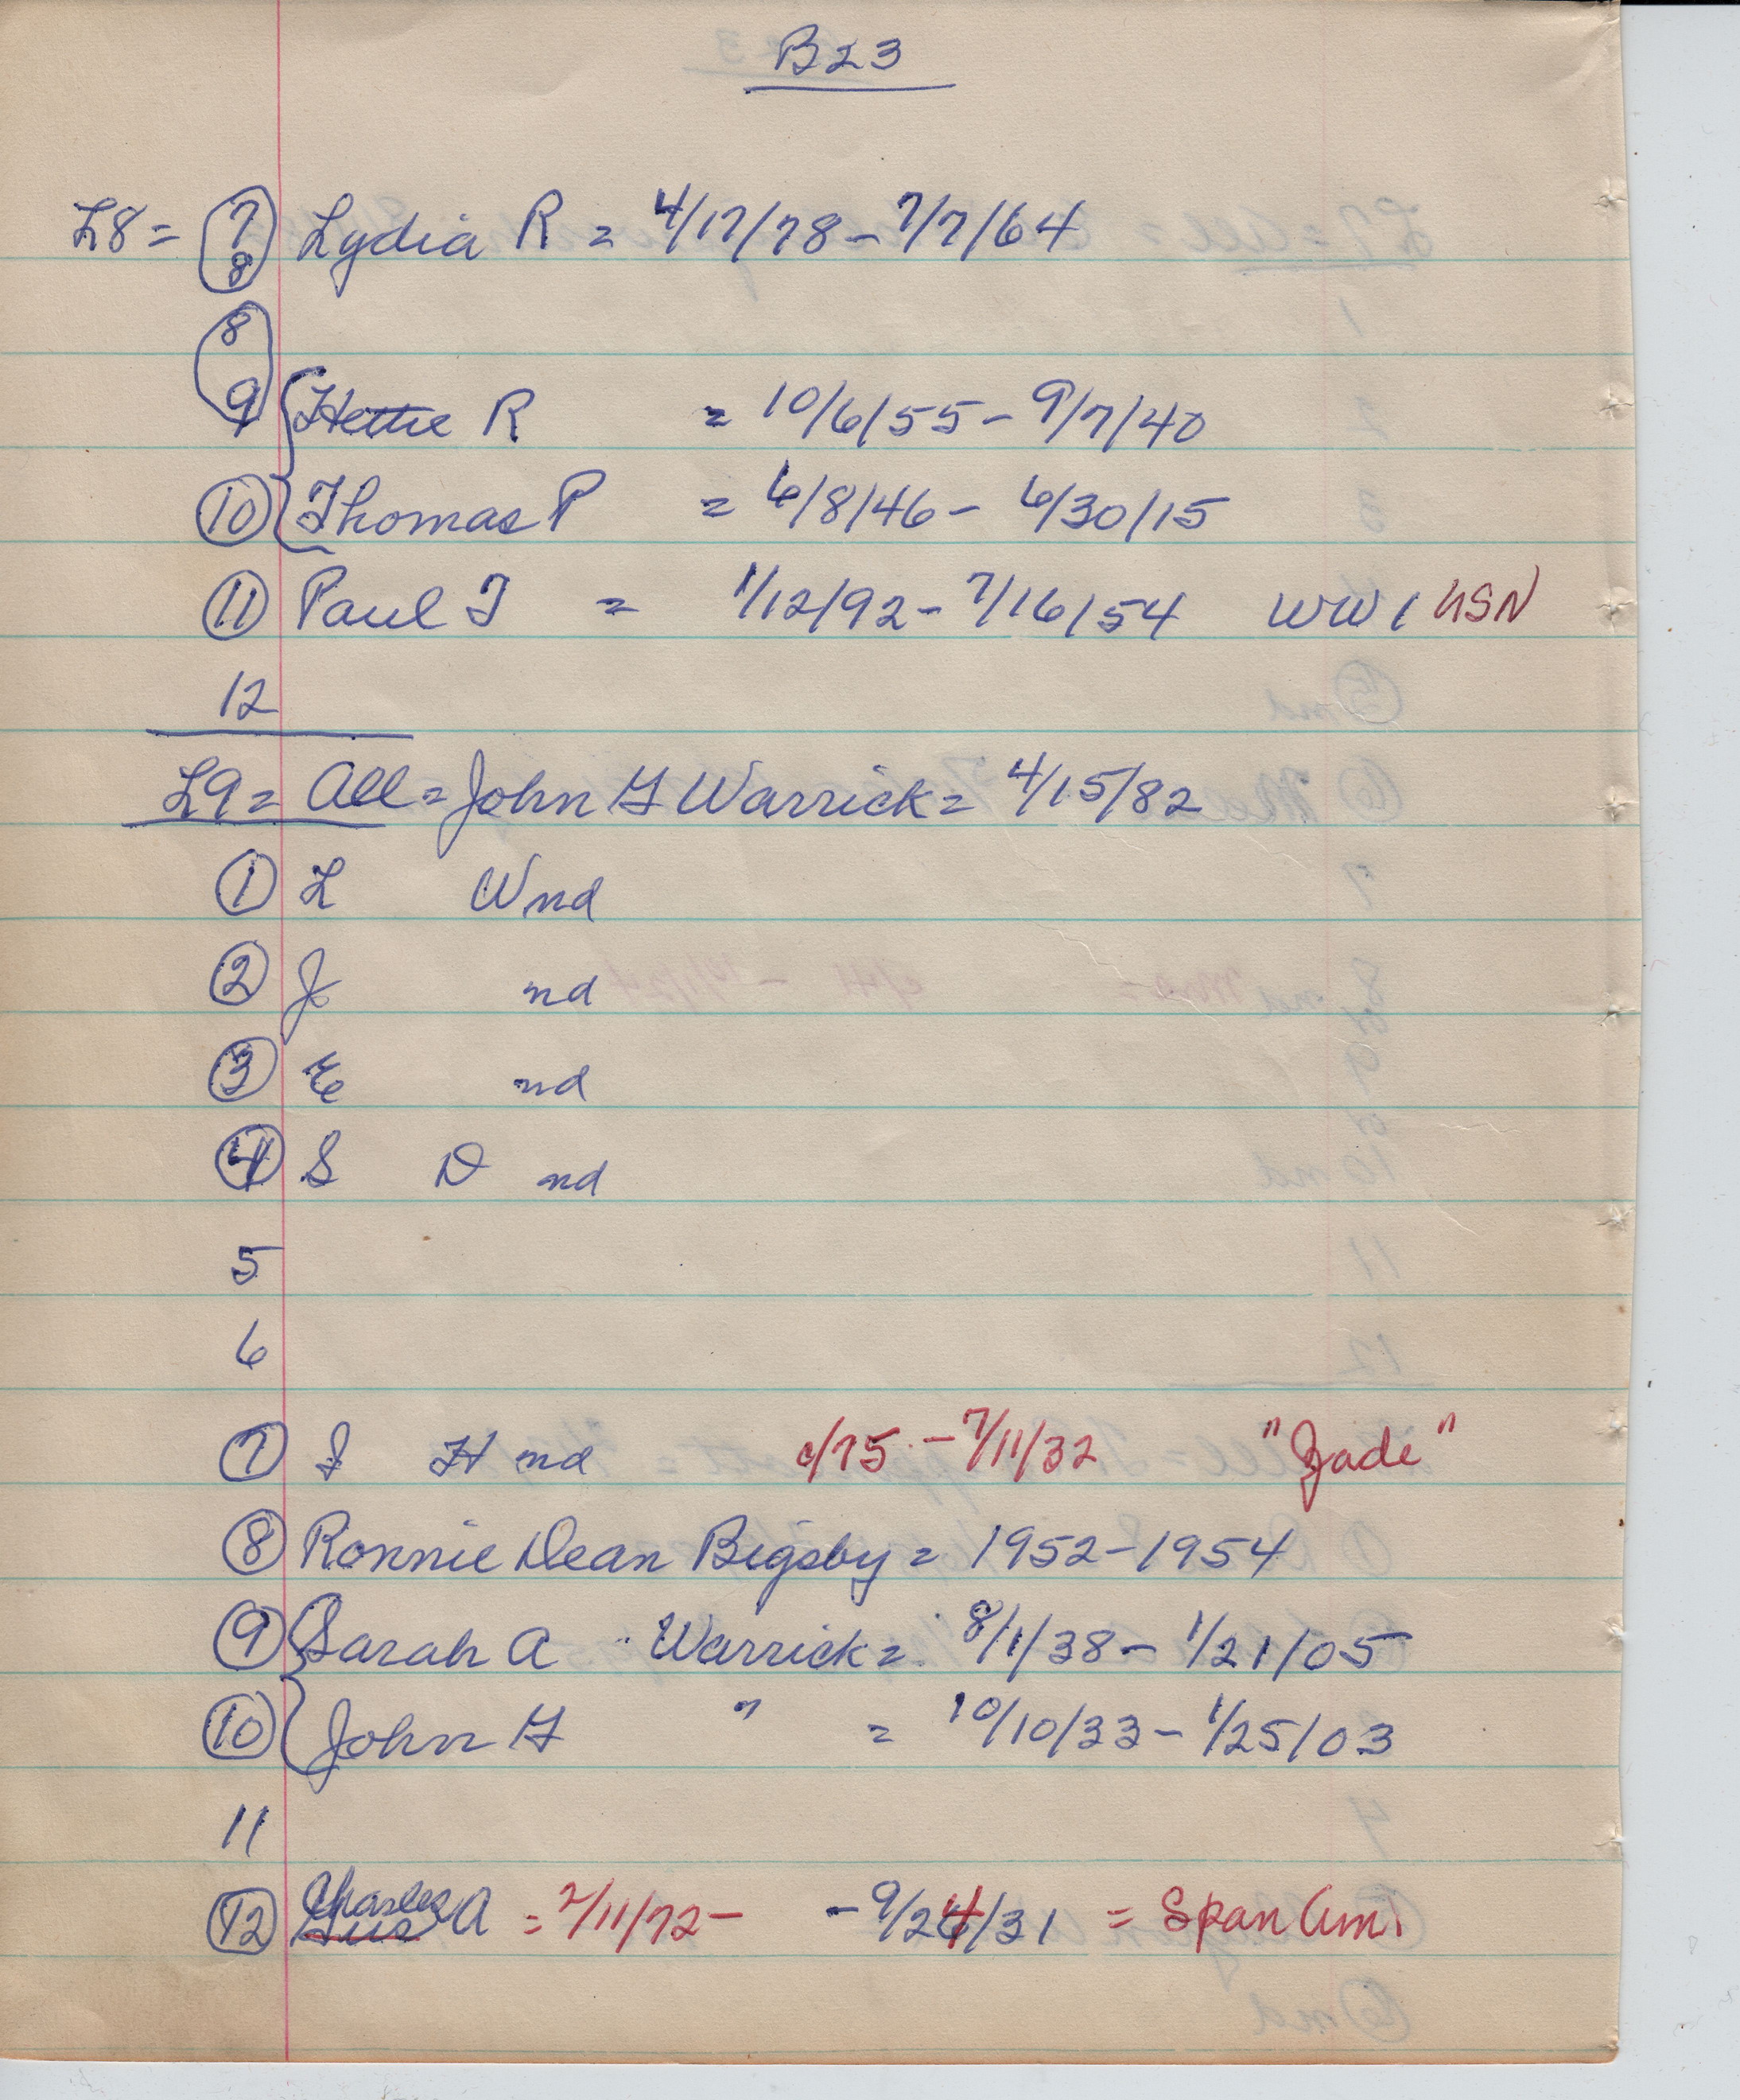 B23
L8 = 7 Lydia R = 4/17/78 - 7/7/64
8
8
9 Hettie R = 10/6/55 - 9/7/40
10 Thomas P = 6/8/46 - 6/30/15
11 Paul T = 1/12/92 - 7/16/54 WW1 USN
12
L9 = All = John G Warrick = 4/15/82
1 L W nd
2 J nd
3 E nd
4 S D nd
5
6
7 I H nd c/75 - 7/11/32 "Jade"
8 Ronnie Dean Bigsby = 1952 - 1954
9 Sarah A Warrick = 8/1/38 - 1/21/05
10 John G " = 10/10/33 - 1/25/03
11
12 Charles A = 2/11/72 - - 9/24/31 = Span Am.